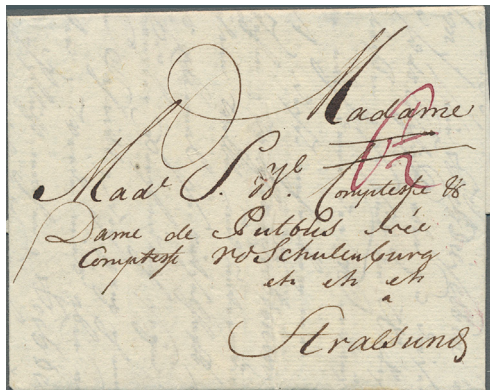 Madame
Mad.e S. W. Comptesse
Dame de Putbus née
Comptesse v. d Schulenburg
etc etc etc
a
Stralsund